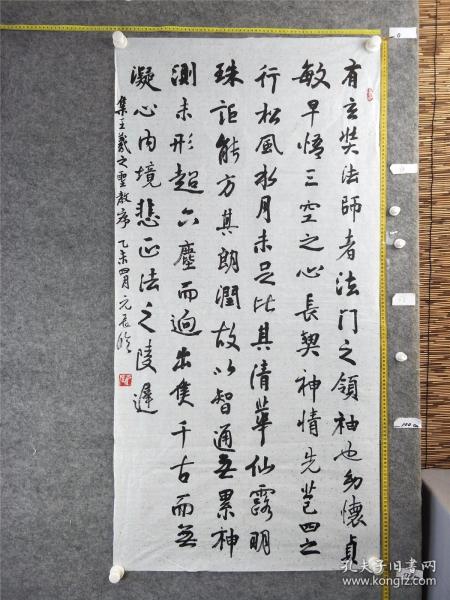 有玄奘法師者法門之領袖也幼懷貞
敏早悟三空之心長契神情先苞四之
行松風水月未足比其清華仙露明
珠詎能方其朗潤故以智通無累神
測未形超六塵而迥出隻千古而無
凝心內境悲正法之陵遲
集王羲之聖教序 乙未四月 元辰臨
孔夫子旧书网